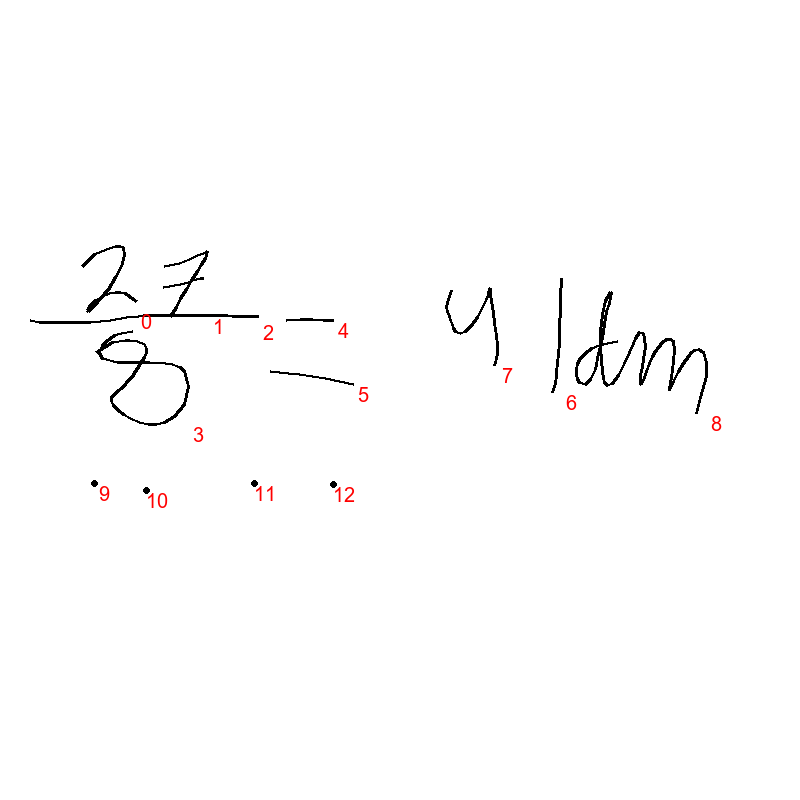 27/8 = 41dm
0 1 2 3 4 5 6 7 8 9 10 11 12
....